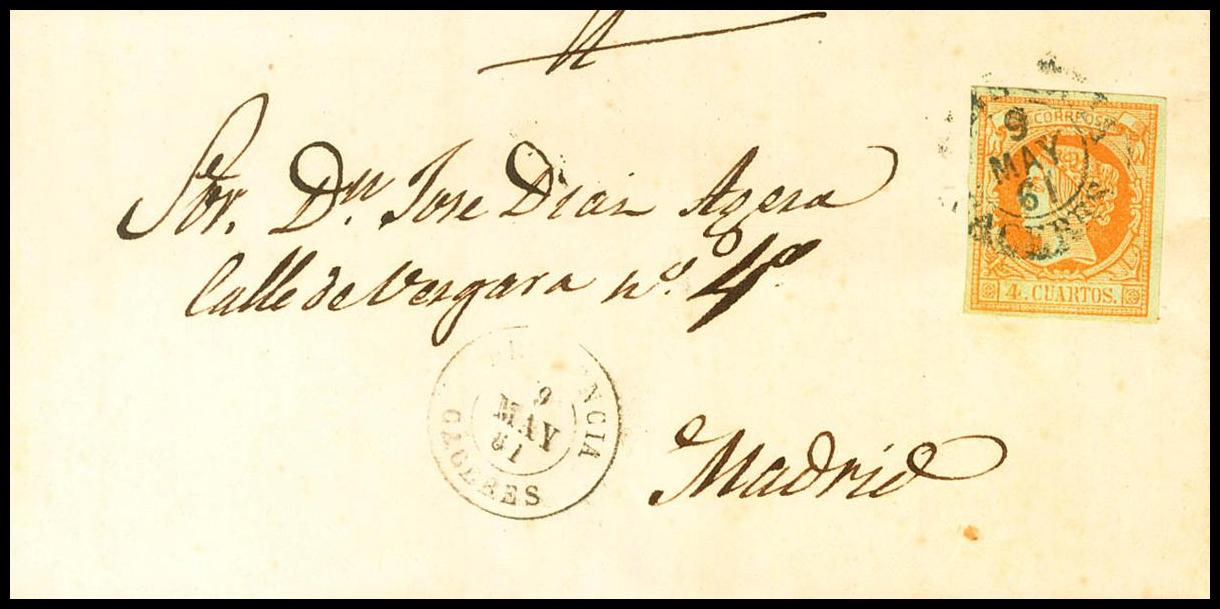 Sor. Dn. Jose Diaz Agero
Calle de Vergara nº. 4º
Madrid
CORREOS
4. CUARTOS.
9
MAY
61
9
MAY
61
CACERES